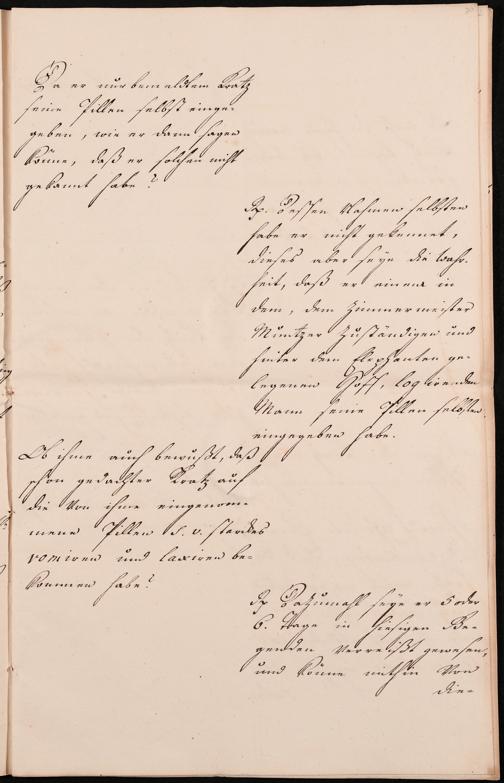 Da er nun bemeldtem Kratz
seine Pillen selbst einge-
geben, wie er dann sagen
könne, daß er solchen nicht
gekannt habe?
Rp. Dessen Nahmen selbsten
habe er nicht gekennet,
dieses aber seye die wahr-
heit, daß er einem in
dem, dem Zimmermeister
Müntzer zuständigen und
hinter dem Elephanten ge-
legenen Hoff, logirenden
Mann seine Pillen selbsten
eingegeben habe.
Ob ihme auch bewußt, daß
schon gedachter Kratz auf
die von ihme eingenom-
mene Pillen s. v. starckes
vomiren und laxiren be-
kommen habe?
Rp. Dazumahl seye er 5 oder
6. Tage in hiesigen Ge-
genden verreißt gewesen,
und könne mithin von
die-